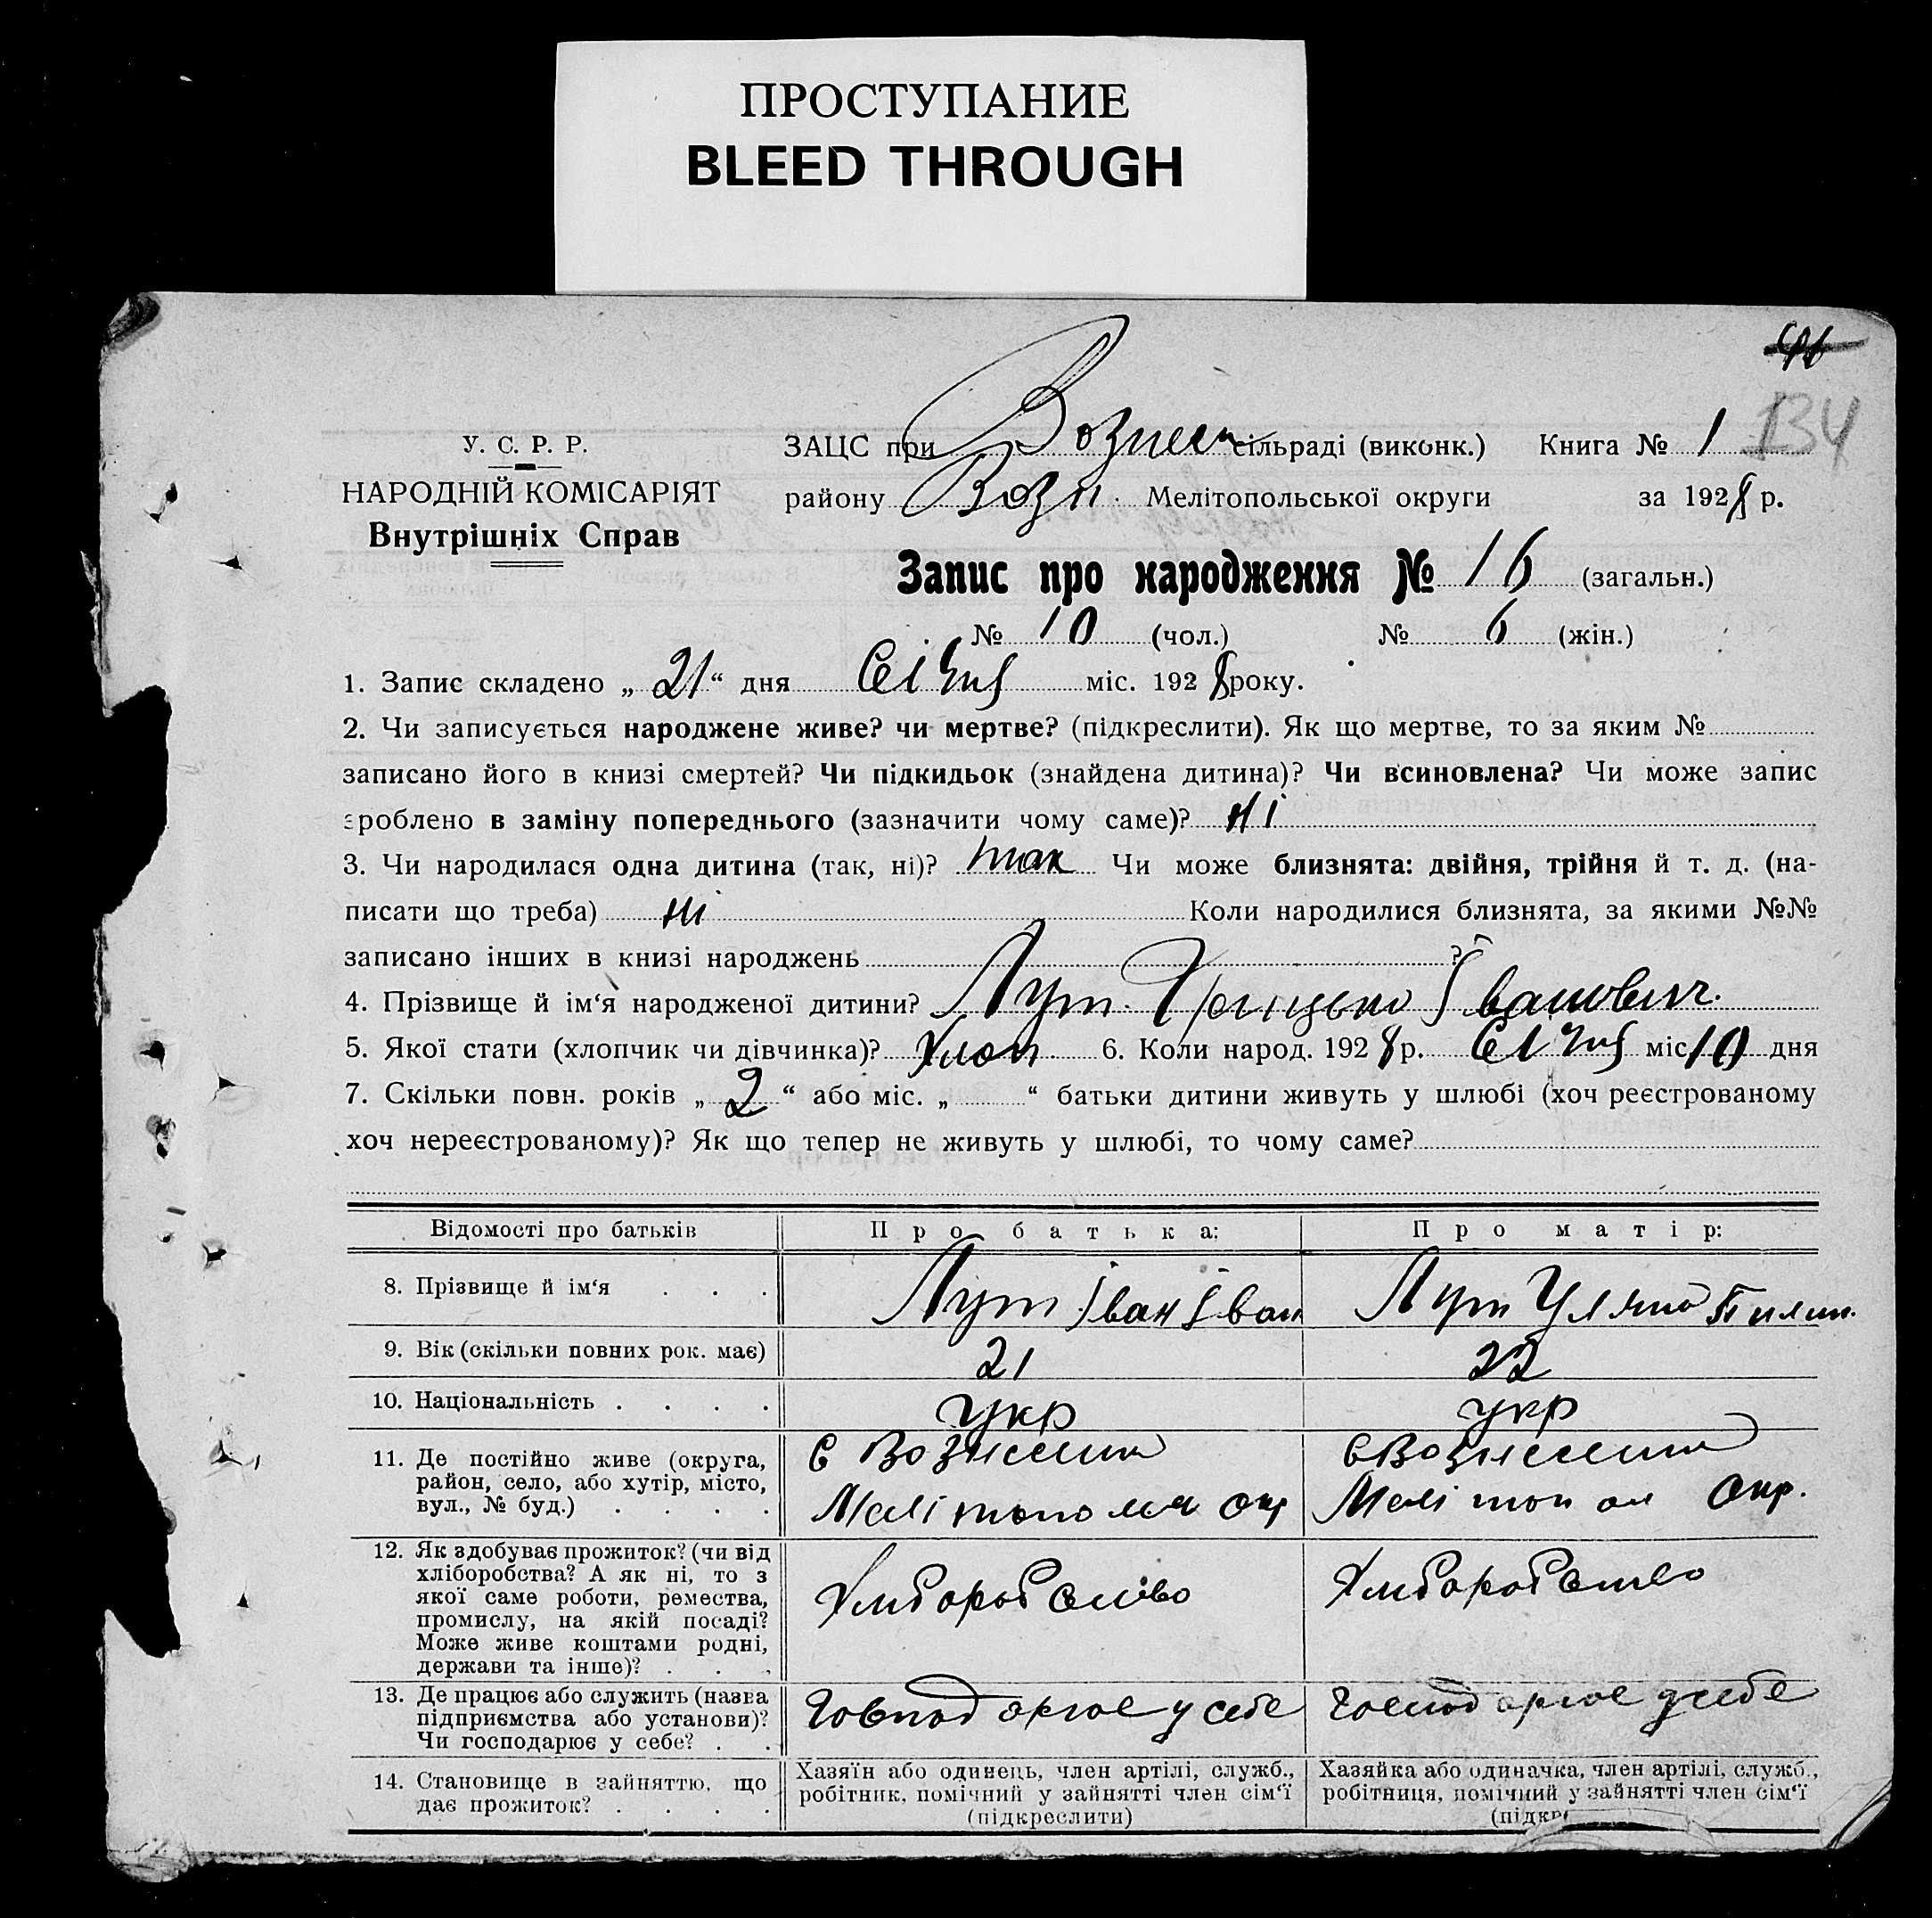 ПРОСТУПАНИЕ
BLEED THROUGH
134
У. С. Р. Р.
НАРОДНІЙ КОМІСАРІЯТ
Внутрішніх Справ
ЗАЦС при Вознес сільраді (виконк.) Книга № 1
району Возн. Мелітопольської округи за 1928 р.
Запис про народження № 16 (загальн.)
№ 10 (чол.) № 6 (жін.)
1. Запис складено „ 21 “ дня Січня міс. 1928 року.
2. Чи записується народжене живе? чи мертве? (підкреслити). Як що мертве, то за яким №
записано його в книзі смертей? Чи підкидьок (знайдена дитина)? Чи всиновлена? Чи може запис
зроблено в заміну попереднього (зазначити чому саме)? ні
3. Чи народилася одна дитина (так, ні)? так Чи може близнята: двійня, трійня й т. д. (на-
писати що треба) ні Коли народилися близнята, за якими №№
записано інших в книзі народжень ?
4. Прізвище й ім‘я народженої дитини? Лут Грицько Іванович.
5. Якої стати (хлопчик чи дівчинка)? Хлоп. 6. Коли народ. 1928 р. Січня міс. 10 дня
7. Скільки повн. років „ 2 “ або міс. „ “ батьки дитини живуть у шлюбі (хоч реєстрованому
хоч нереєстрованому)? Як що тепер не живуть у шлюбі, то чому саме?
Відомості про батьків Про батька: Про матір:
8. Прізвище й ім‘я . . . Лут Іван Іван Лут Уляна Пилип.
9. Вік (скільки повних рок. має) 21 22
10. Національність . . . . укр укр
11. Де постійно живе (округа,
район, село, або хутір, місто,
вул., № буд.) . . . .
с Вознесенка
Мелітополя окр
с Вознесенка
Мелітопол Окр.
12. Як здобуває прожиток? (чи від
хліборобства? А як ні, то з
якої саме роботи, ремества,
промислу, на якій посаді?
Може живе коштами родні,
держави та інше)? . . .
Хліборобство
Хліборобство
13. Де працює або служить (назва
підприємства або установи)?
Чи господарює у себе? . .
Господарює у себе
господарює у себе
14. Становище в зайняттю, що
дає прожиток? . . . .
Хазяїн або одинець, член артілі, служб.,
робітник, помічний у зайнятті член сім‘ї
(підкреслити)
Хазяйка або одиначка, член артілі, служб.,
робітниця, помічний у зайнятті член сім‘ї
(підкр